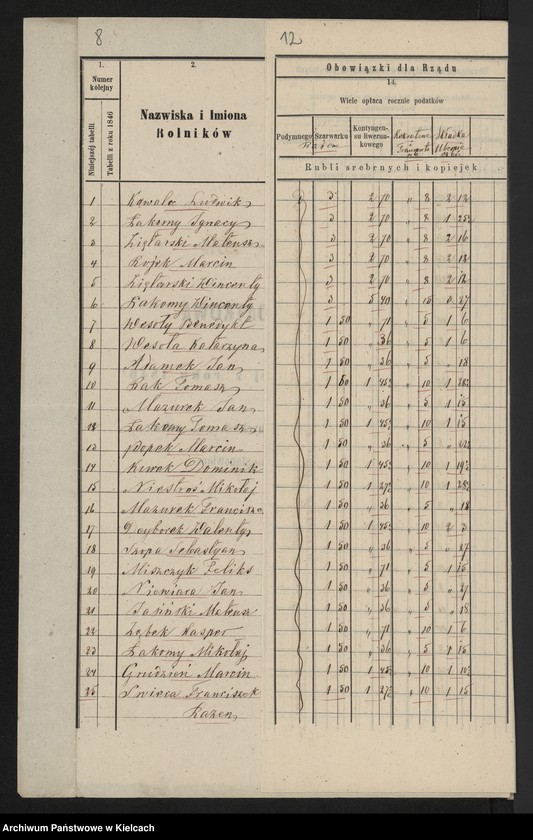 8
12
1.
2.
Numer kolejny
Niniejszej tabelli
Tabelli z roku 1846
Nazwiska i Imiona
Rolników
Obowiązki dla Rządu
14.
Wiele opłaca rocznie podatków
Podymnego
Szarwarku
Kontyngensu liwerunkowego
Składka
Rubli srebrnych i kopiejek
1 Kowala Ludwik 3 2 70 " 8 2 12
2 Łakomy Ignacy 3 2 70 " 8 1
3 Ziętarski Mateusz 3 2 70 " 8 2 16
4 Kojek Marcin 3 2 70 " 8 2 12
5 Ziętarski Wincenty 3 2 70 " 8 2 12
6 Łakomy Wincenty 3 5 40 " 15 3 27
7 Wesoły Benedykt 1 50 " 71 " 5 1 6
8 Wesoła Katarzyna 1 50 " 36 " 5 1 6
9 Adamek Jan 1 50 " 36 " 5 " 18
10 Żak Tomasz 1 50 1 " 10 1
11 Mazurek Jan 1 50 " 36 " 5 1 15
12 Łakomy Tomasz 1 50 1 " 10 1 15
13 Popek Marcin 1 50 " 36 " 5 "
14 Kurek Dominik 1 50 1 " 10 1
15 Niestrój Mikołaj 1 50 1 " 10 1
16 Mazurek Franciszek 1 50 " 36 " 5 " 18
17 Walenty 1 50 1 " 10 2 3
18 Szopa Sebastyan 1 50 " 36 " 5 " 27
19 Miszczyk Feliks 1 50 " 71 " 5 1 15
20 Niewiara Jan 1 50 " 36 " 5 " 27
21 Jasiński Mateusz 1 50 " 36 " 5 " 18
22 Ząbek Kasper 1 50 " 71 " 10 1 6
23 Łakomy Mikołaj 1 50 " 36 " 5 1 15
24 Grudzień Marcin 1 50 1 " 10 1
25 Franciszek 1 50 1 " 10 1 15
Razem
Archiwum Państwowe w Kielcach